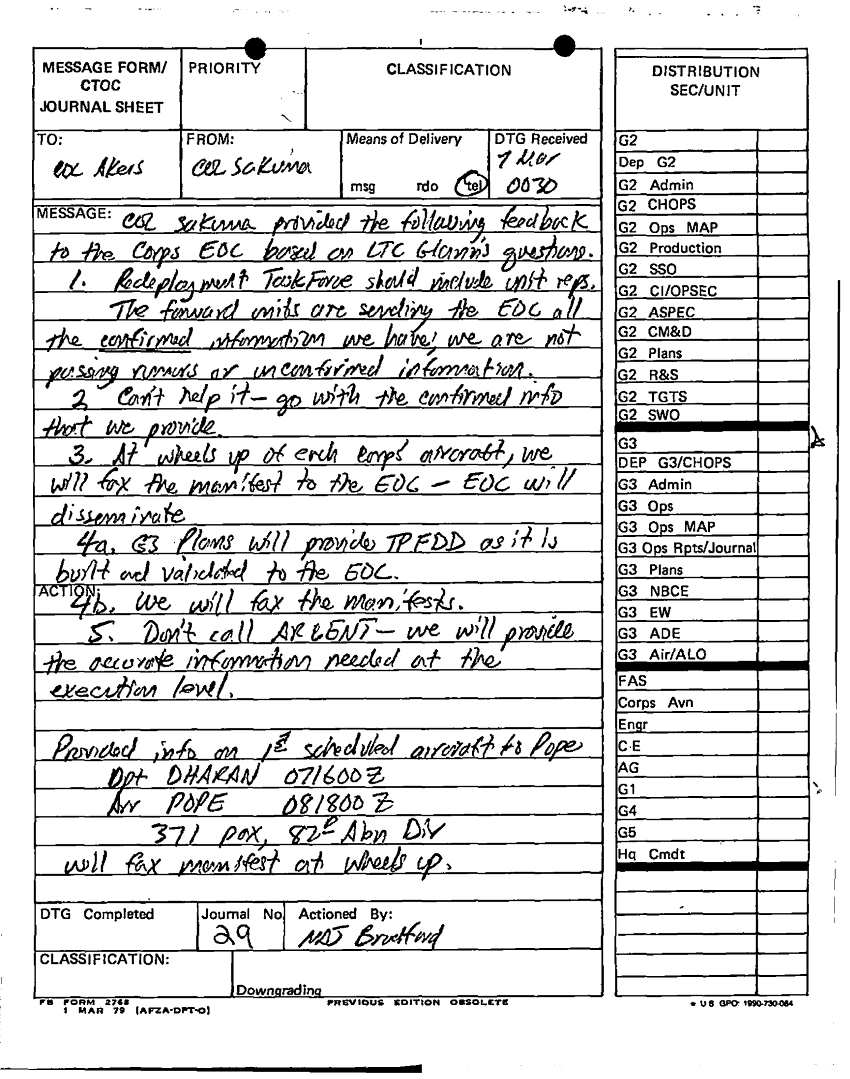 MESSAGE FORM/
CTOC
JOURNAL SHEET
PRIORITY
CLASSIFICATION
TO:
COL Akers
FROM:
COL Sakuma
Means of Delivery
msg rdo tel
DTG Received
7 Mar
0030
MESSAGE: COL Sakuma provided the following feedback
to the Corps EOC based on LTC Glannis questions.
1. Redeployment Task Force should include unit reps.
The forward units are sending the EOC all
the confirmed information we have; we are not
passing rumors or unconfirmed information.
2 Can't help it - go with the confirmed info
that we provide.
3. At wheels up of each Corps aircraft, we
will fax the manifest to the EOC - EOC will
disseminate
4a. G3 Plans will provide TPFDD as it is
built and validated to the EOC.
ACTION:
4b. We will fax the manifests.
5. Don't call ARCENT - we will provide
the accurate information needed at the
execution level.
Provided info on 1st scheduled aircraft to Pope
Dpt DHARAN 071600Z
Arr POPE 081800Z
371 pax, 82d Abn Div
will fax manifest at wheels up.
DTG Completed
Journal No.
29
Actioned By:
MAJ
CLASSIFICATION:
Downgrading
FB FORM 2768
1 MAR 79 (AFZA-DPT-O)
PREVIOUS EDITION OBSOLETE
DISTRIBUTION
SEC/UNIT
G2
Dep G2
G2 Admin
G2 CHOPS
G2 Ops MAP
G2 Production
G2 SSO
G2 CI/OPSEC
G2 ASPEC
G2 CM&D
G2 Plans
G2 R&S
G2 TGTS
G2 SWO
G3
DEP G3/CHOPS
G3 Admin
G3 Ops
G3 Ops MAP
G3 Ops Rpts/Journal
G3 Plans
G3 NBCE
G3 EW
G3 ADE
G3 Air/ALO
FAS
Corps Avn
Engr
C E
AG
G1
G4
G5
Hq Cmdt
* U S GPO: 1990-730-084